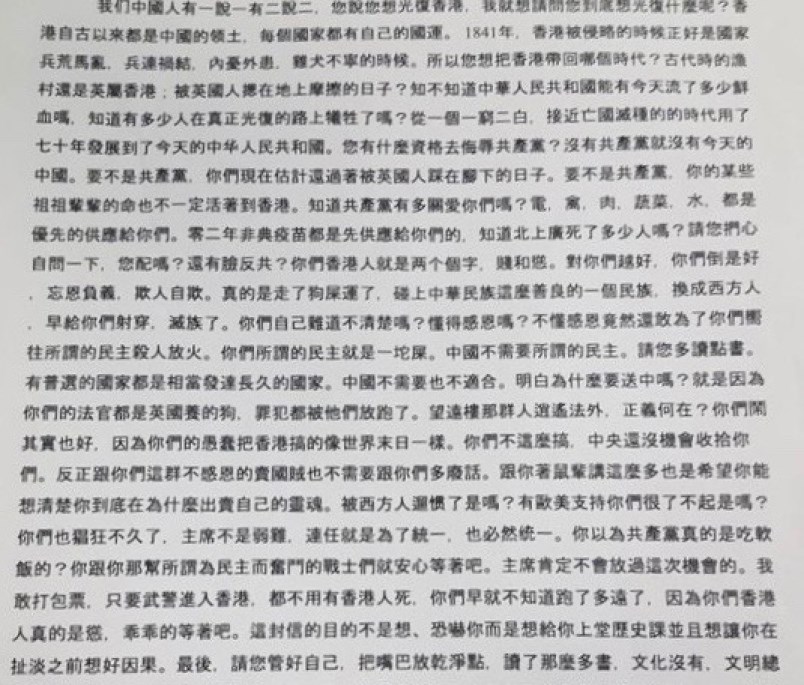 我们中國人有一說一有二說二，您說您想光復香港，我就想請問您到底想光復什麼呢？香
港自古以來都是中國的領土，每個國家都有自己的國運。1841年，香港被侵略的時候正好是國家
兵荒馬亂，兵連禍結，內憂外患，雞犬不寧的時候。所以您想把香港帶回哪個時代？古代時的漁
村還是英屬香港；被英國人摁在地上摩擦的日子？知不知道中華人民共和國能有今天流了多少鮮
血嗎，知道有多少人在真正光復的路上犧牲了嗎？從一個一窮二白，接近亡國滅種的的時代用了
七十年發展到了今天的中华人民共和國。您有什麼資格去侮辱共產黨？沒有共產黨就沒有今天的
中國。要不是共產黨，你們現在估計還過著被英國人踩在腳下的日子。要不是共產黨，你的某些
祖祖輩輩的命也不一定活著到香港。知道共產黨有多關愛你們嗎？電，禽，肉，蔬菜，水，都是
優先的供應給你們。零二年非典疫苗都是先供應給你們的，知道北上廣死了多少人嗎？請您捫心
自問一下，您配嗎？還有臉反共？你們香港人就是两个個字，賤和慫。對你們越好，你們倒是好
，忘恩負義，欺人自欺。真的是走了狗屎運了，碰上中華民族這麼善良的一個民族，換成西方人
，早給你們射穿，滅族了。你們自己難道不清楚嗎？懂得感恩嗎？不懂感恩竟然還敢為了你們嚮
往所謂的民主殺人放火。你們所謂的民主就是一坨屎。中國不需要所謂的民主。請您多讀點書。
有普選的國家都是相當發達長久的國家。中國不需要也不適合。明白為什麼要送中嗎？就是因為
你們的法官都是英國養的狗，罪犯都被他們放跑了。望遠樓那群人逍遙法外，正義何在？你們鬧
其實也好，因為你們的愚蠢把香港搞的像世界末日一樣。你們不這麼搞，中央還沒機會收拾你
們。反正跟你們這群不感恩的賣國賊也不需要跟你們多廢話。跟你著鼠輩講這麼多也是希望你能
想清楚你到底在為什麼出賣自己的靈魂。被西方人遛慣了是嗎？有歐美支持你們很了不起是嗎？
你們也猖狂不久了，主席不是弱雞，連任就是為了統一，也必然统一。你以為共產黨真的是吃軟
飯的？你跟你那幫所謂為民主而奮鬥的戰士們就安心等著吧。主席肯定不會放過這次機會的。我
敢打包票，只要武警進入香港，都不用有香港人死，你們早就不知道跑了多遠了，因為你們香港
人真的是慫，乖乖的等著吧。這封信的目的不是想、恐嚇你而是想給你上堂歷史課並且想讓你在
扯淡之前想好因果。最後，請您管好自己，把嘴巴放乾淨點，讀了那麼多書，文化沒有，文明總